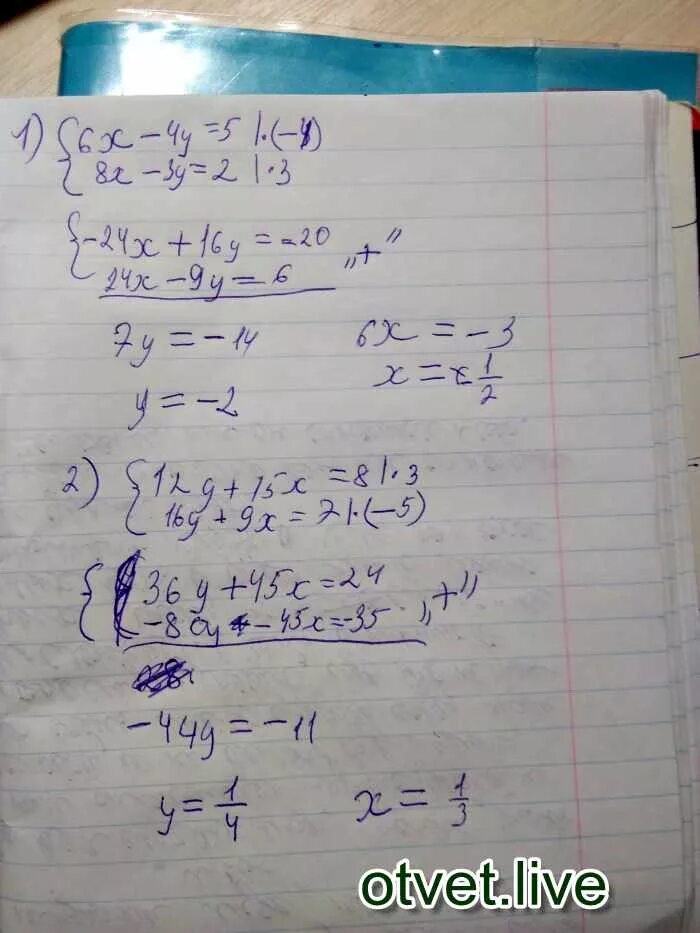 1) { 6x - 4y = 5 | · (-4)
8x - 3y = 2 | · 3
{ -24x + 16y = -20
24x - 9y = 6 „+"
7y = -14 6x = -3
y = -2 x = -1/2
2) { 12y + 15x = 8 | · 3
16y + 9x = 7 | · (-5)
{ 36y + 45x = 24
-80y - 45x = -35 „+"
-44y = -11
y = 1/4 x = 1/3
otvet.live